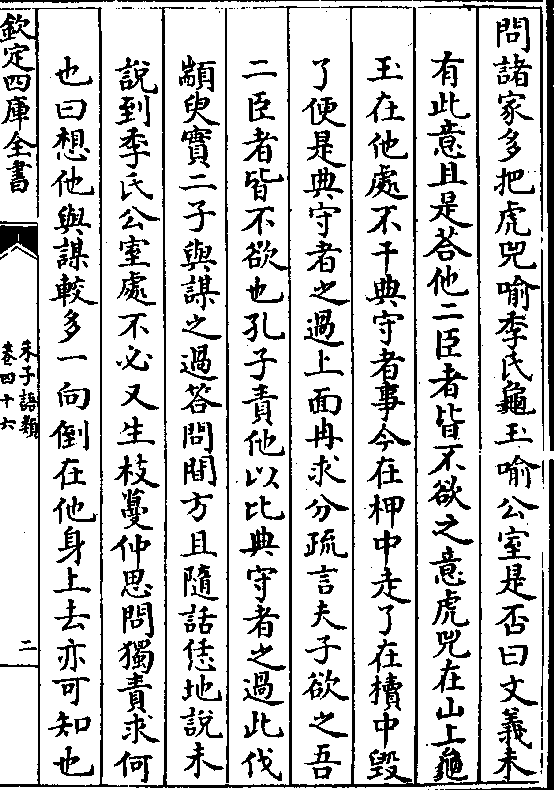 問諸家多把虎兕喻季氏龜玉喻公室是否曰文義未
有此意且是荅他二臣者皆不欲之意虎兕在山上龜
玉在他處不干典守者事今在柙中走了在櫝中毀
了便是典守者之過上面冉求分疏言夫子欲之吾
二臣者皆不欲也孔子責他以比典守者之過此伐
顓臾實二子與謀之過答問間方且隨話恁地說未
說到季氏公室處不必又生枝蔓仲思問獨責求何
也曰想他與謀較多一向倒在他身上去亦可知也
欽定四庫全書
朱子語類
卷四十六
二